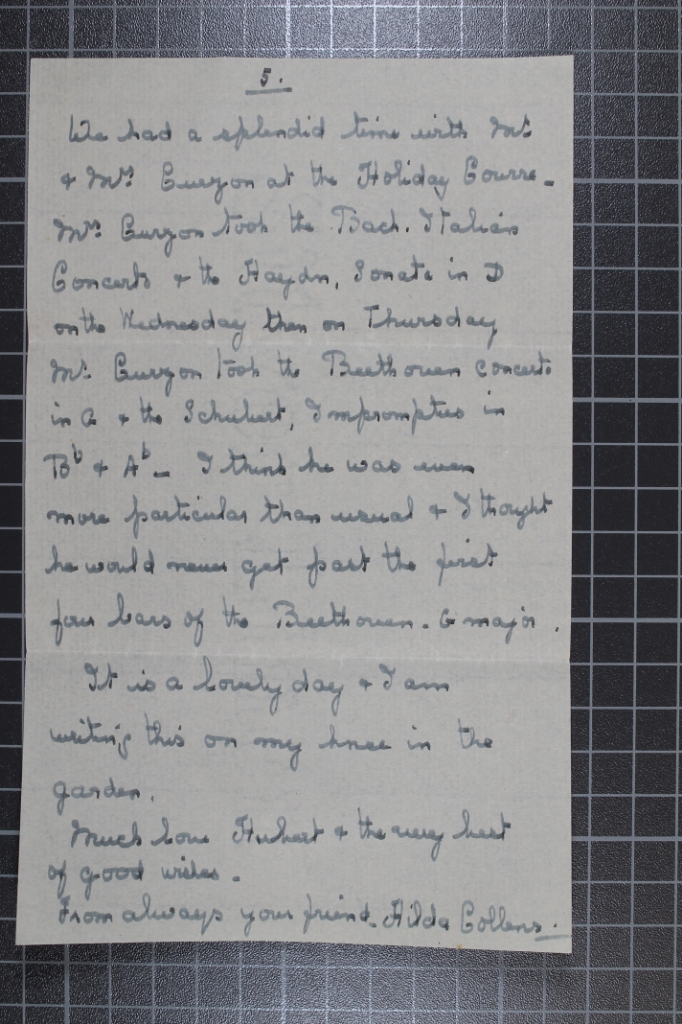 5.
We had a splendid time with Mr.
& Mrs. Curzon at the Holiday Course -
Mrs. Curzon took the Bach. Italian
Concerto & the Haydn, Sonata in D
on the Wednesday then on Thursday
Mr. Curzon took the Beethoven Concerto
in G & the Schubert, Impromptus in
Bb & Ab - I think he was even
more particular than usual & I thought
he would never get past the first
four bars of the Beethoven. G major.
It is a lovely day & I am
writing this on my knee in the
garden.
Much love Hubert & the very best
of good wishes.
From always your friend. Hilda Collens.